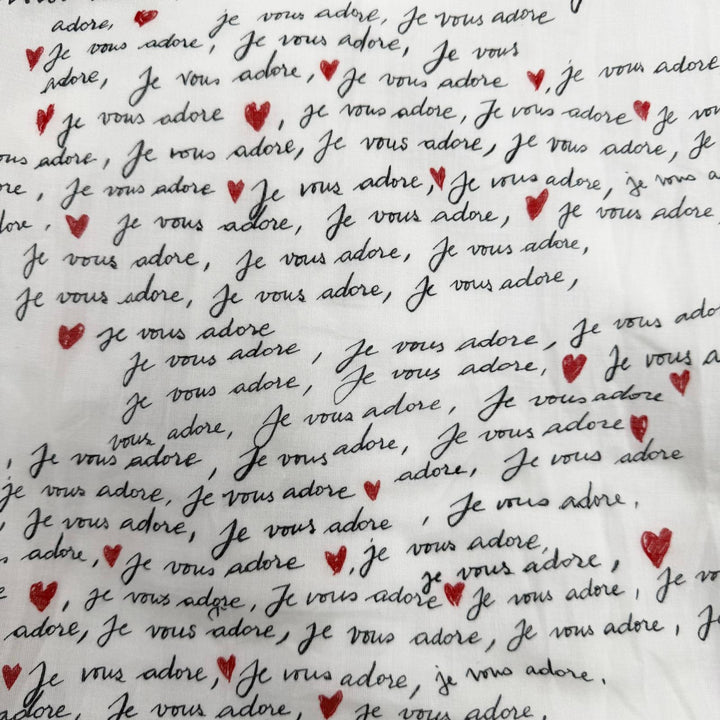 adore, je vous adore, Je vous adore
Je vous adore, Je vous adore, Je vous
adore, Je vous adore, Je vous adore, je vous adore
Je vous adore, je vous adore, Je vous adore Je vous
adore, Je vous adore, Je vous adore, Je vous adore, Je
Je vous adore Je vous adore, Je vous adore, je vous
Je vous adore, Je vous adore, Je vous adore,
Je vous adore, Je vous adore, Je vous adore,
Je vous adore, Je vous adore, Je vous adore,
Je vous adore
Je vous adore, Je vous adore, Je vous
Je vous adore, Je vous adore, Je vous
vous adore, Je vous adore, Je vous adore
, Je vous adore, Je vous adore, Je vous adore
Je vous adore, Je vous adore adore, Je vous adore
, Je vous adore, Je vous adore, Je vous adore,
adore, Je vous adore, je vous adore,
je vous adore,
, Je vous adore, Je vous adore Je vous adore, Je
adore, Je vous adore, Je vous adore, Je vous adore, J
Je vous adore, Je vous adore, je vous adore,
adore, Je vous adore, Je vous adore,